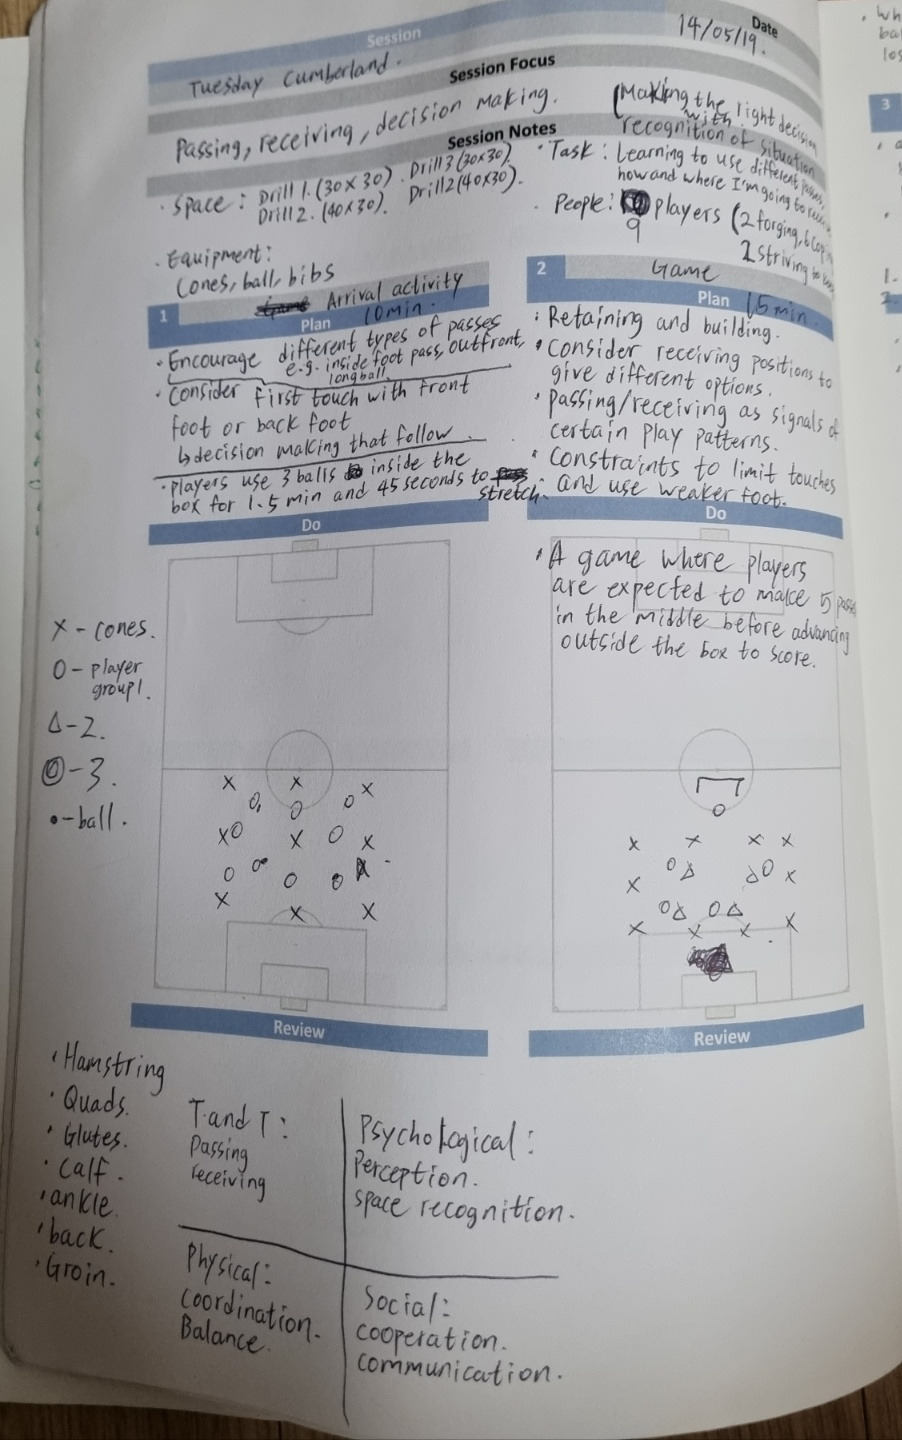 Session
Date
14/05/19.
Tuesday Cumberland.
Session Focus
Passing, receiving, decision making.
(Making the right decision
with
recognition of situation
Session Notes
· Space : Drill 1. (30x30) . Drill 3 (30x30).
Drill 2. (40x30). Drill2 (40x30).
· Task : Learning to use different passes,
how and where I'm going to
. People: 9 players (2 forging, 6
2 striving to
. Equipment:
Cones, ball, bibs
1
Arrival activity
Plan 10 min.
· Encourage different types of passes
e.g. inside foot pass, outfront,
long ball
· Consider first touch with front
foot or back foot
↳ decision making that follow.
· players use 3 balls inside the
box for 1.5 min and 45 seconds to
stretch.
2
Game
Plan 15 min.
· Retaining and building.
· Consider receiving positions to
give different options.
· Passing/receiving as signals of
certain play patterns.
· Constraints to limit touches
and use weaker foot.
Do
X - cones.
O - player
group 1.
Δ - 2.
- 3.
• - ball.
Do
· A game where players
are expected to make 5 passes
in the middle before advancing
outside the box to score.
Review
· Hamstring
· Quads.
· Glutes.
· Calf.
· ankle.
· back.
· Groin.
T and T :
Passing
receiving
Psychological :
Perception.
space recognition.
Physical :
Coordination.
Balance.
Social :
cooperation.
communication.
Review
. Wh
ba
los
3
1.
2.